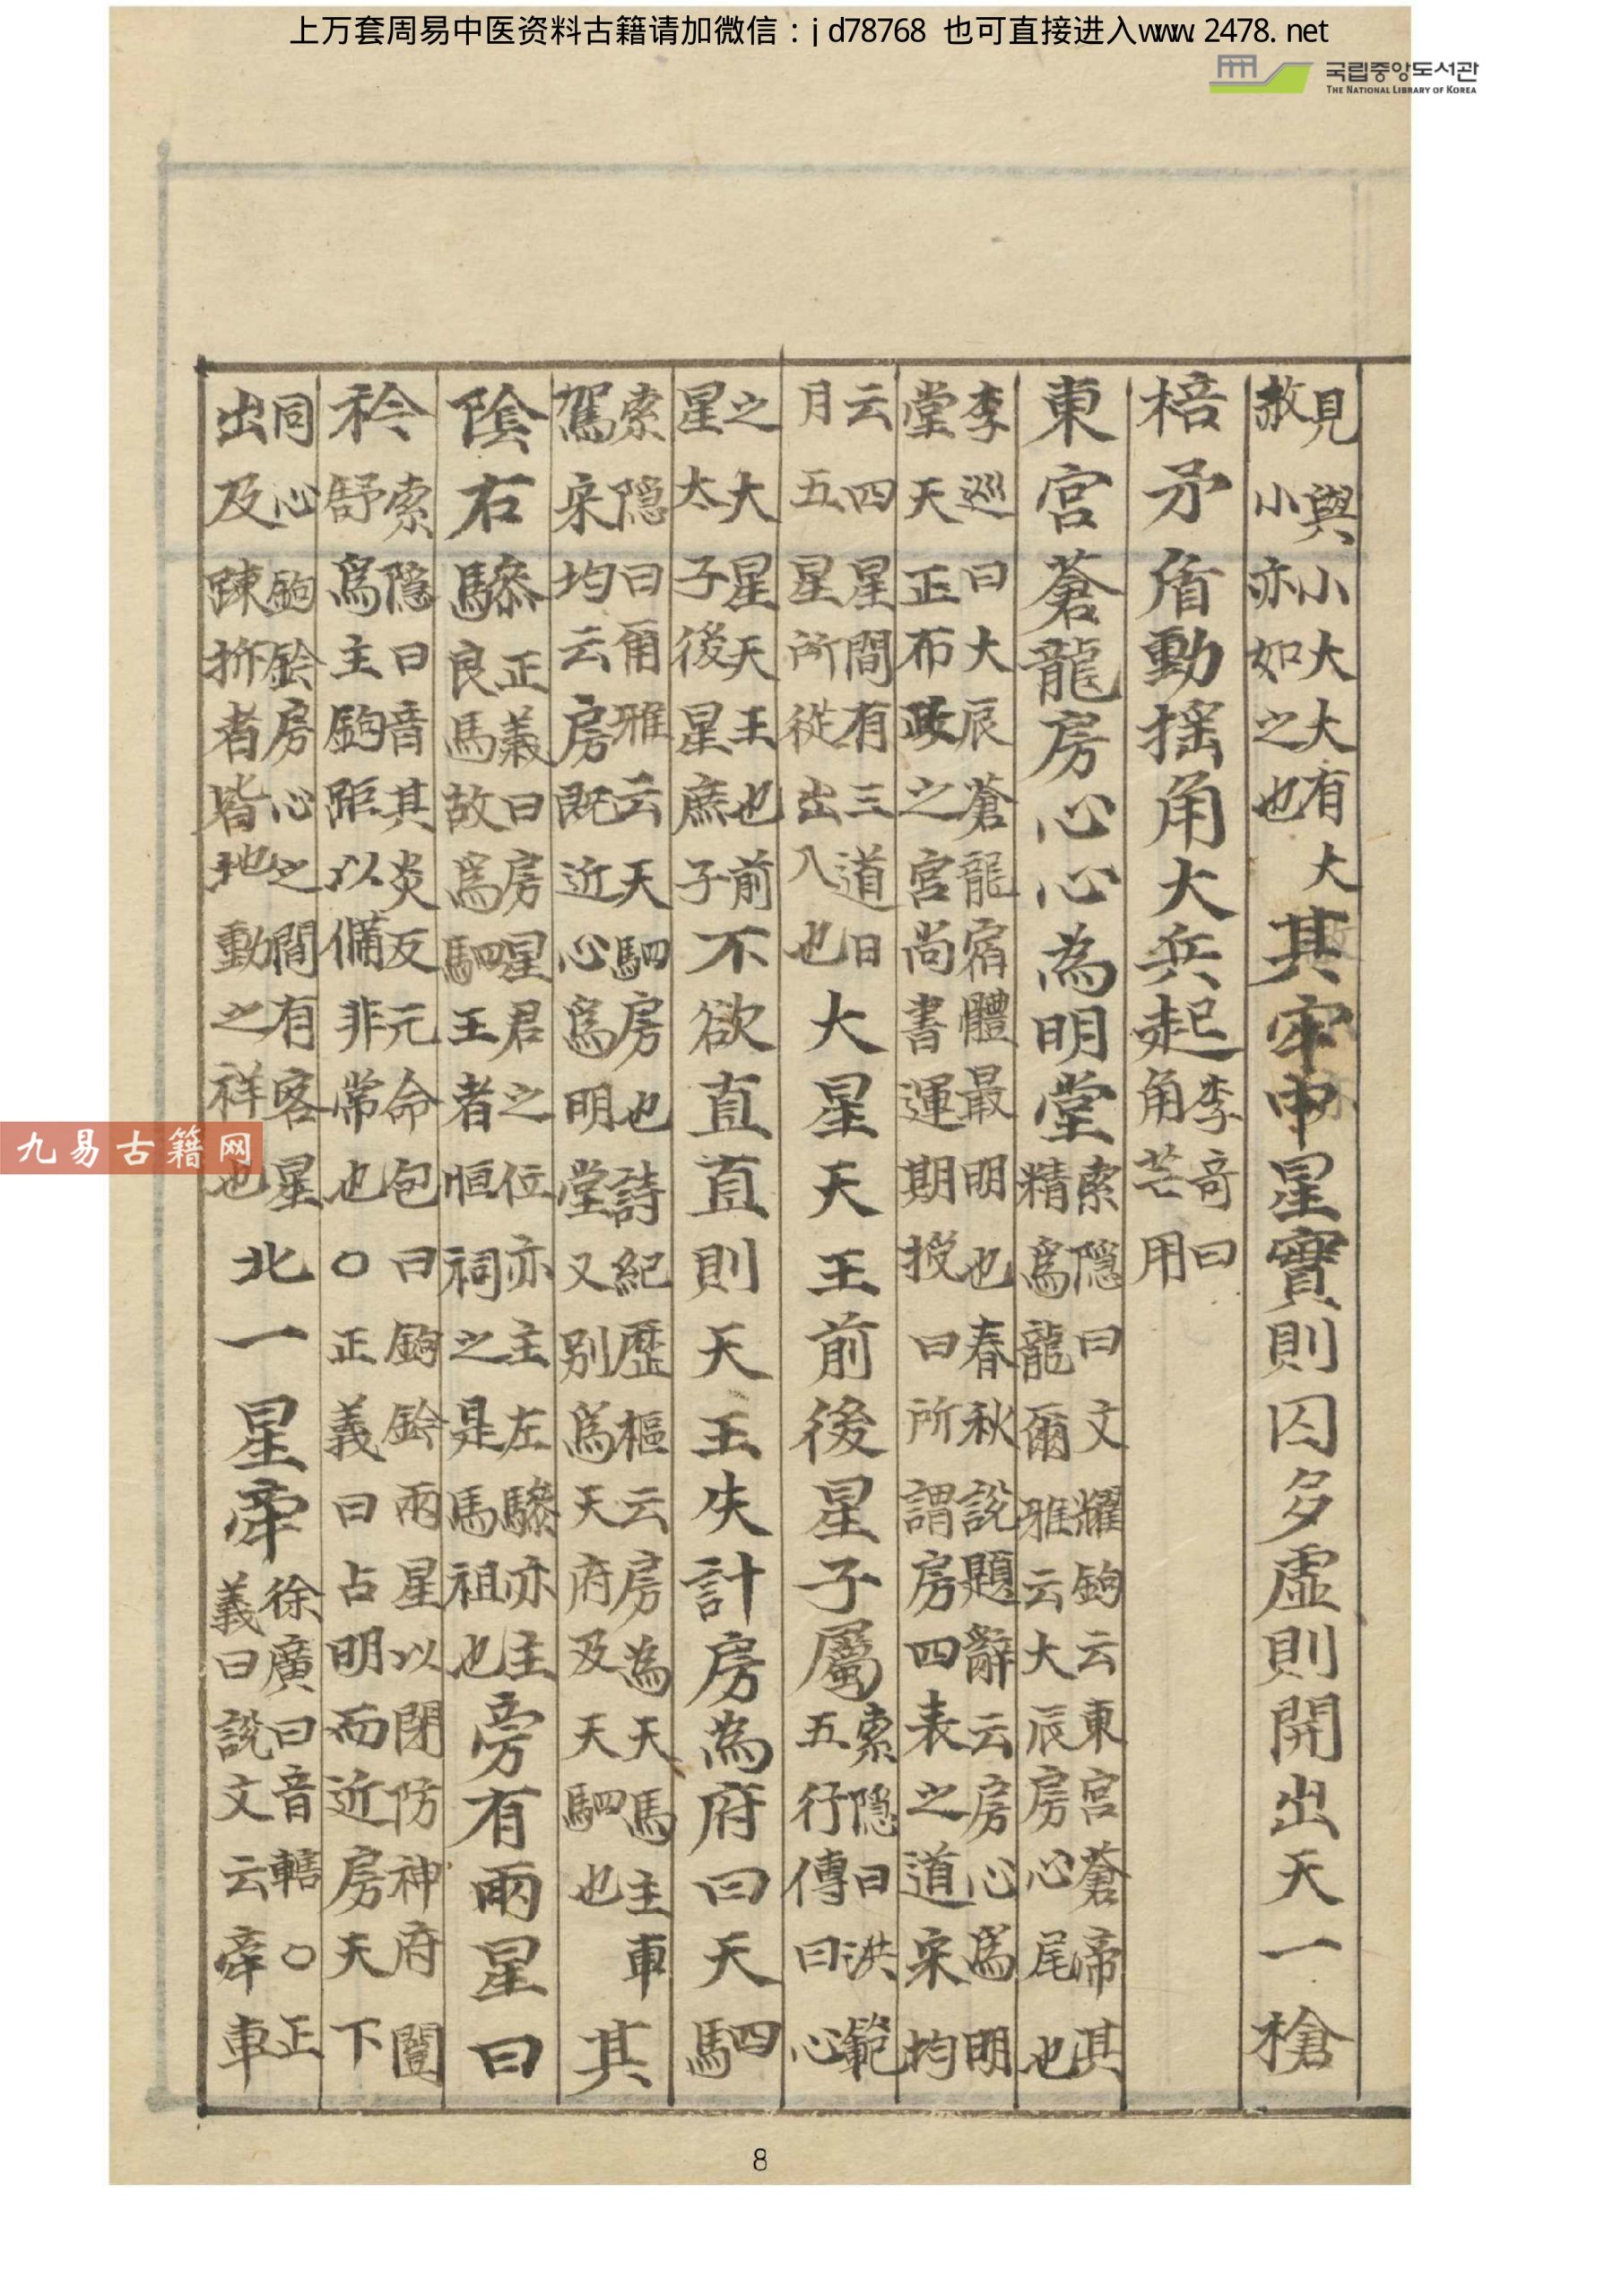 上万套周易中医资料古籍请加微信：jd78768 也可直接进入www.2478.net
국립중앙도서관
THE NATIONAL LIBRARY OF KOREA
見與小大大有大赦小亦如之也其牢中星實則囚多虛則開出天一槍
棓矛盾動搖角大兵起李奇曰角芒用
東宮蒼龍房心心為明堂索隱曰文耀鉤云東宮蒼帝其精爲龍爾雅云大辰房心尾也
李巡曰大辰蒼龍宿體最明也春秋說題辭云房心爲明堂天正布政之宮尚書運期授曰所謂房四表之道宋均
云四星間有三道日月五星所從出入也大星天王前後星子屬索隱曰洪範五行傳曰心
之大星天王也前星太子後星庶子不欲直直則天王失計房為府曰天駟
索隱曰爾雅云天駟房也詩紀歷樞云房為天馬主車駕宋均云房既近心爲明堂又別爲天府及天駟也其
陰右驂正義曰房星君之位亦主左驂亦主良馬故爲駟王者恒祠之是馬祖也旁有兩星曰
衿索隱曰音其炎反元命包曰鉤鈐兩星以閉防神府闓舒爲主鉤距以備非常也○正義曰占明而近房天下
同心鉤鈐房心之間有客星出及踈拆者皆地動之祥也北一星舝徐廣曰音轄○正義曰說文云舝車
九易古籍网
8